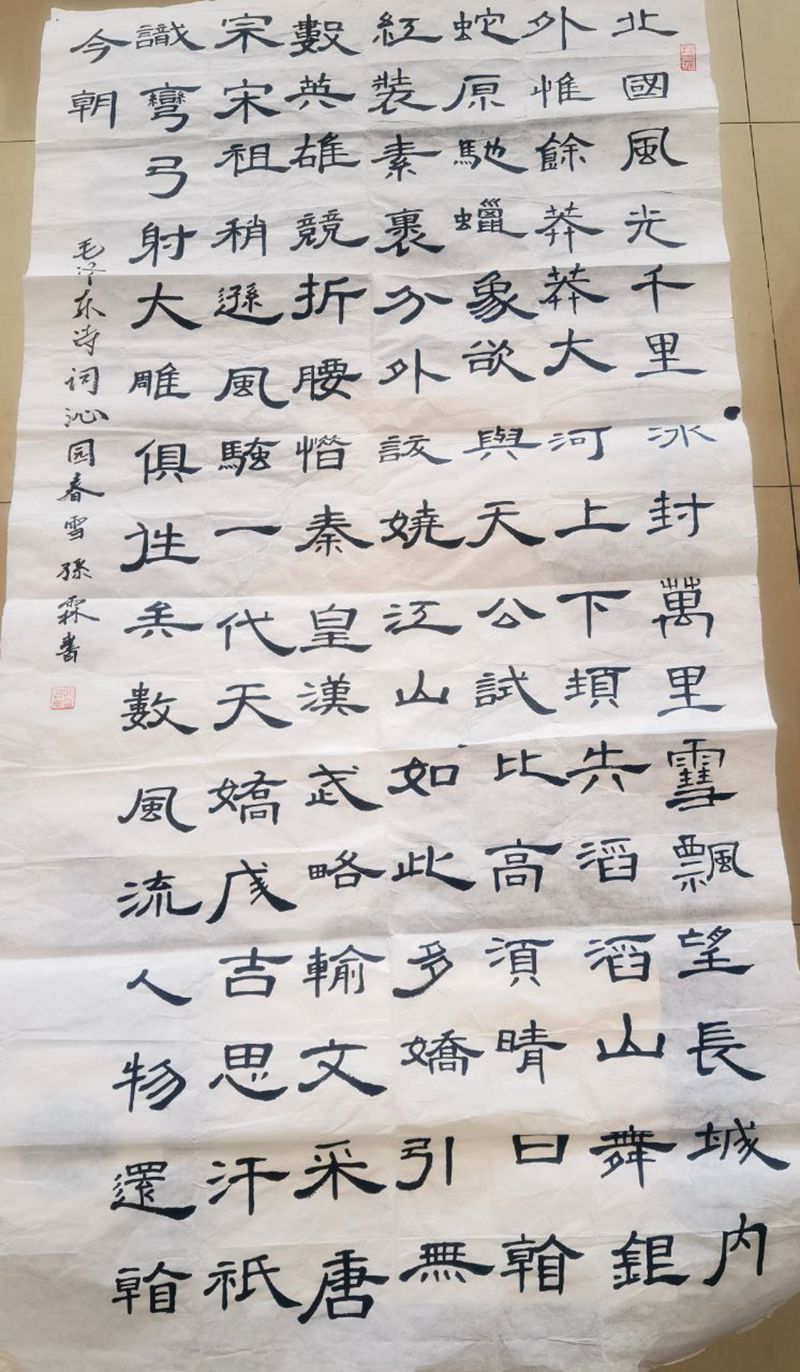 北國風光千里冰封萬里雪飄望長城内
外惟餘莽莽大河上下頓失滔滔山舞銀
蛇原馳蠟象欲與天公試比高須晴日看
紅裝素裹分外嬈江山如此多嬌引無
數英雄競折腰惜秦皇漢武略輸文采唐
宗宋祖稍遜風騷一代天嬌成吉思汗祇
識彎弓射大雕俱往矣數風流人物還看
今朝
毛泽东诗词沁园春雪 孫霖書